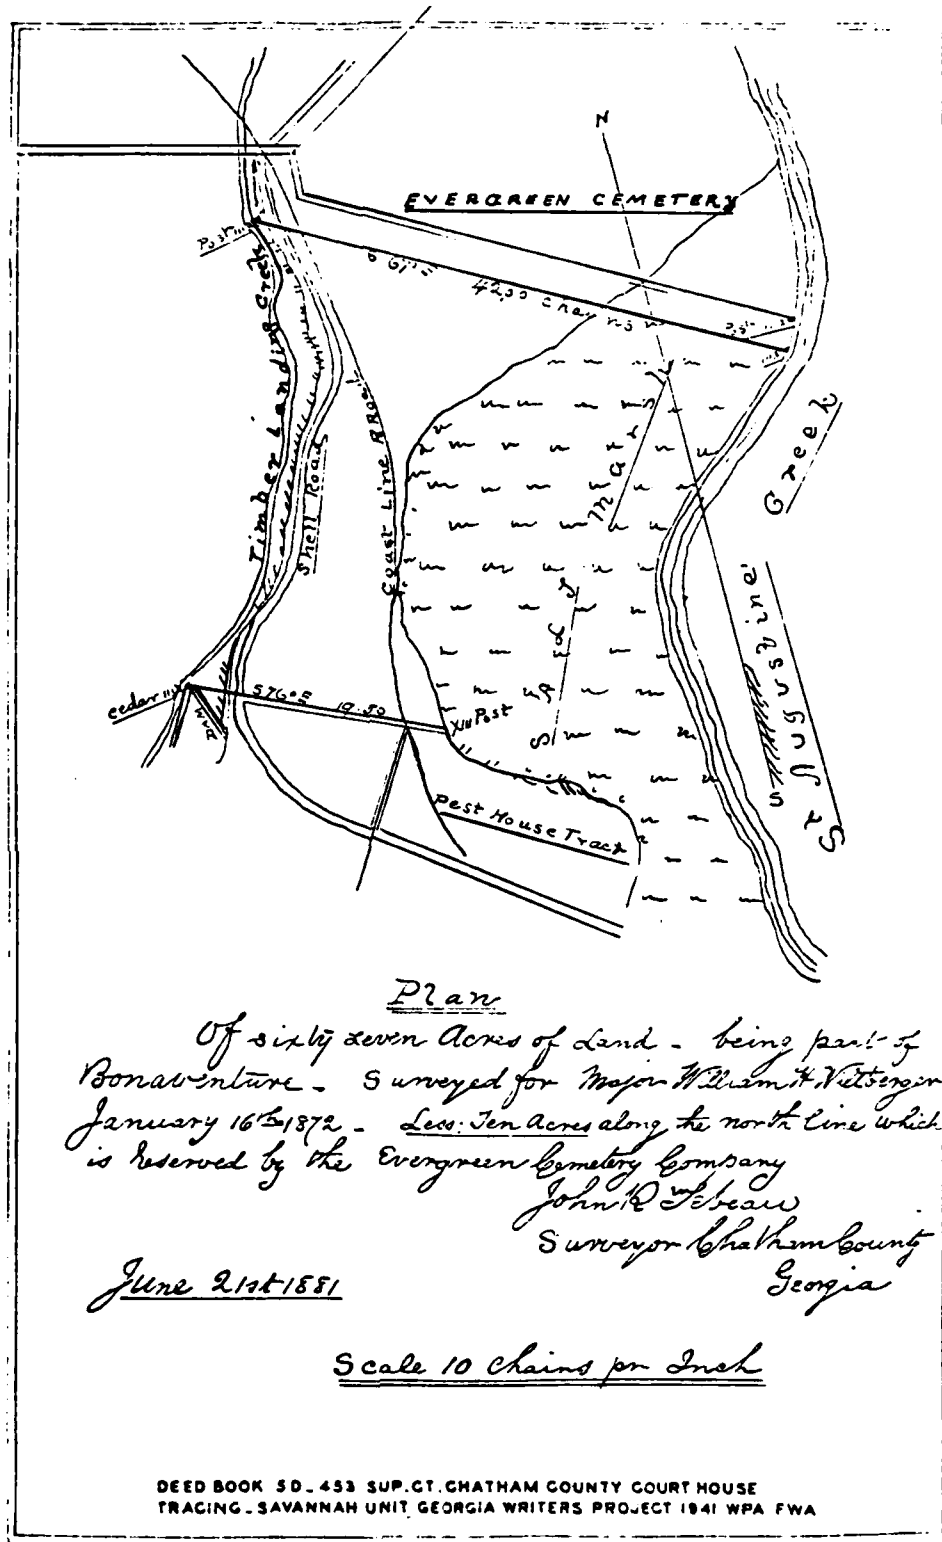 N
EVERGREEN CEMETERY
Post
42,50 chains
Timber Landing Creek
Shell Road
Coast Line RRoad
Salt Marsh
St Augustine Creek
S
cedar
S76°E 19.50
XIII Post
Pest House Tract
Plan
Of sixty seven Acres of Land - being part of
Bonaventure - Surveyed for Major William H Wiltberger
January 16th 1872 - Less: Ten Acres along the north line which
is Reserved by the Evergreen Cemetery Company
John R Tebeau
Surveyor Chatham County
Georgia
June 21st 1881
Scale 10 Chains pr Inch
DEED BOOK 5D-453 SUP.CT.CHATHAM COUNTY COURT HOUSE
TRACING-SAVANNAH UNIT GEORGIA WRITERS PROJECT 1941 WPA FWA